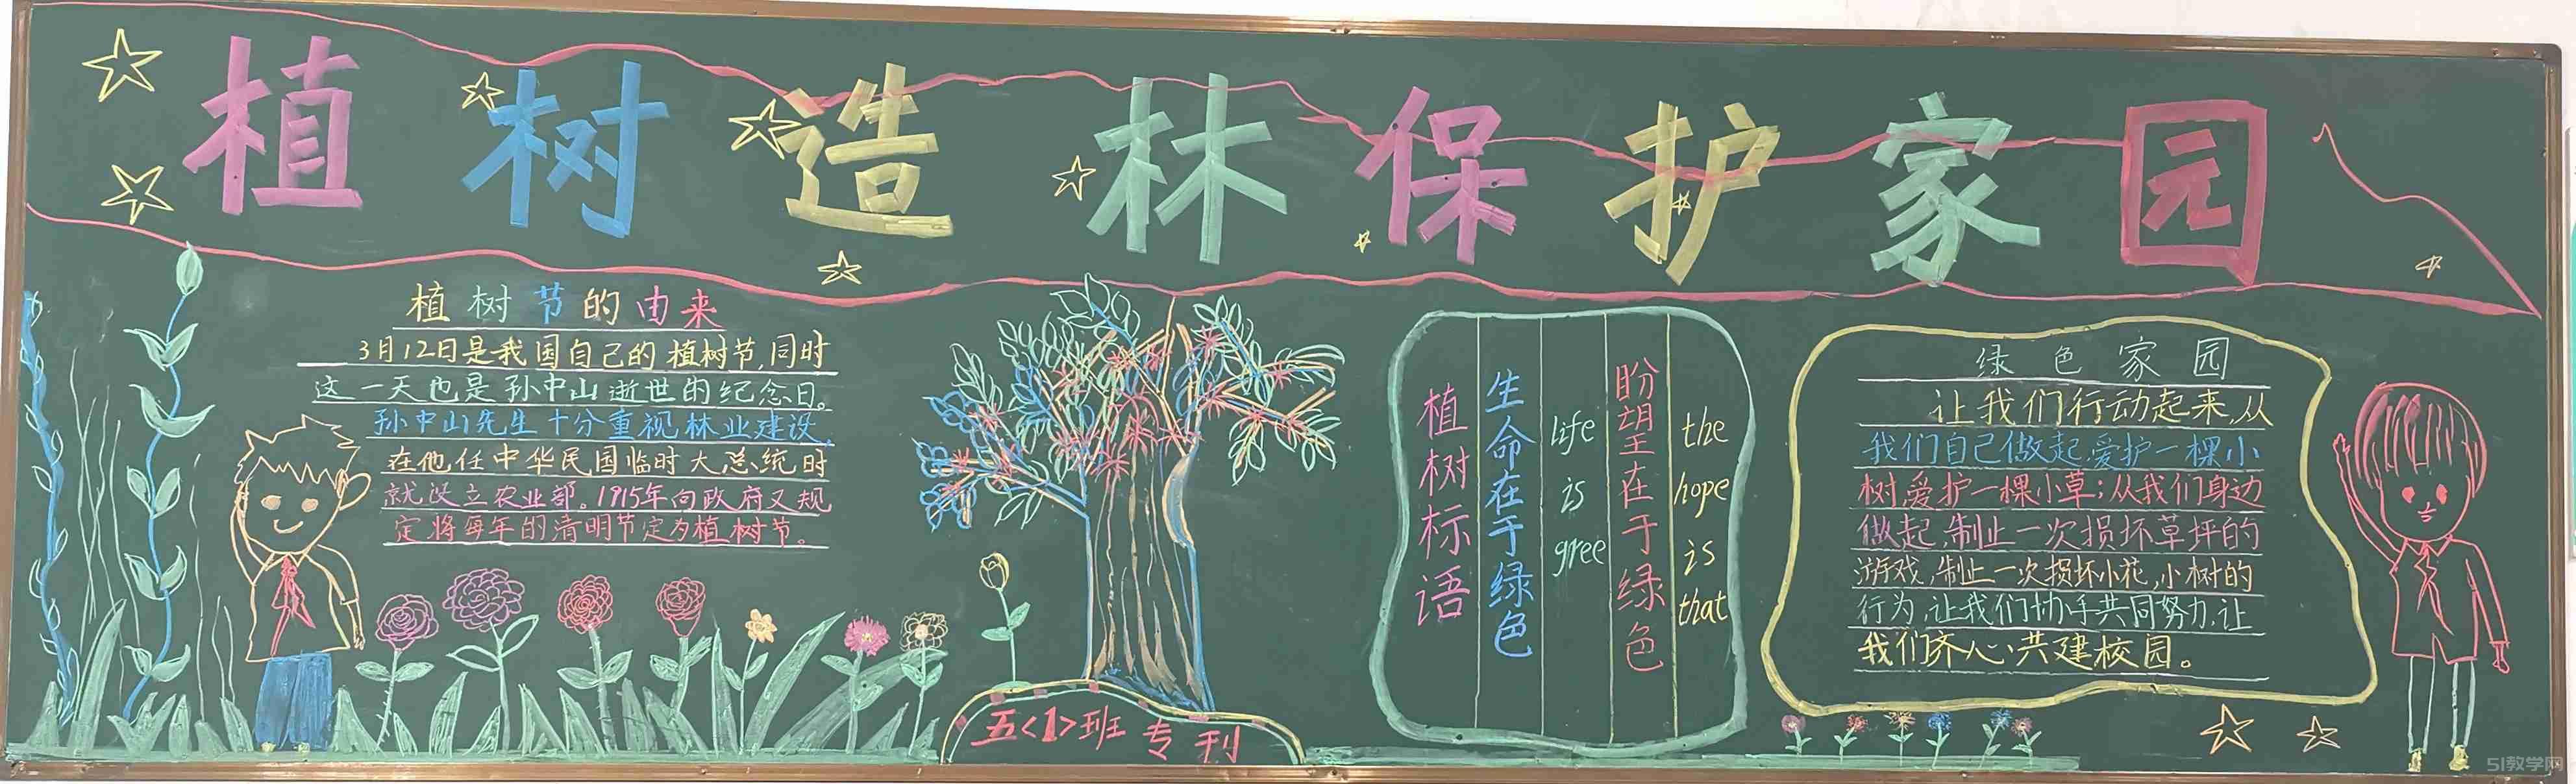 植树造林保护家园
植树节的由来
3月12日是我国自己的植树节,同时
这一天也是孙中山逝世的纪念日。
孙中山先生十分重视林业建设,
在他任中华民国临时大总统时
就设立农业部。1915年向政府又规
定将每年的清明节定为植树节。
五<1>班专刊
植树标语
生命在于绿色
life is gree
盼望在于绿色
the hope is that
绿色家园
让我们行动起来,从
我们自己做起,爱护一棵小
树,爱护一棵小草;从我们身边
做起,制止一次损坏草坪的
游戏,制止一次损坏小花,小树的
行为,让我们协手共同努力,让
我们齐心共建校园。
51教学网